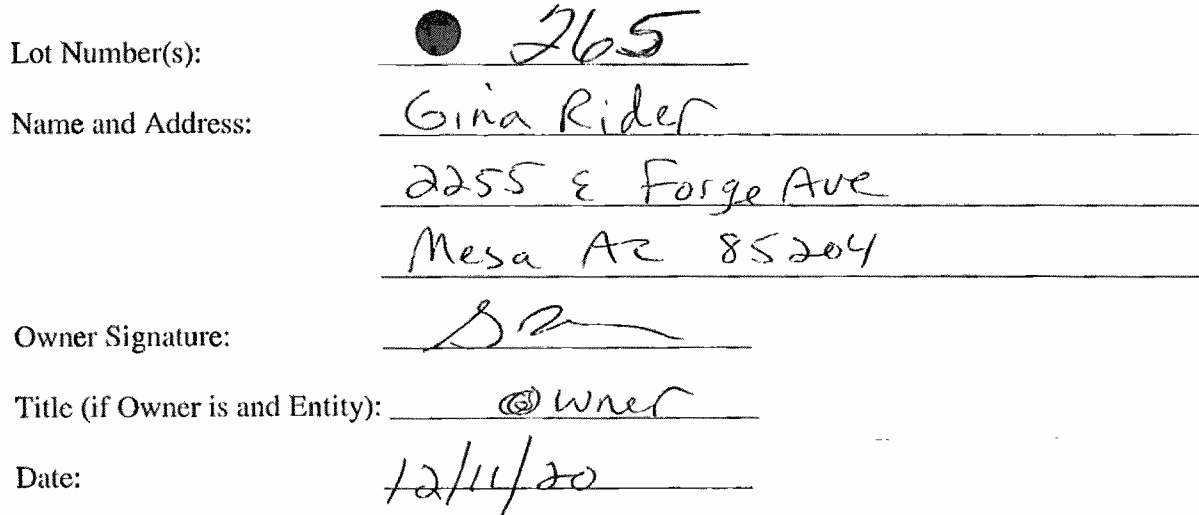 Lot Number(s): 265
Name and Address: Gina Rider
2255 E Forge Ave
Mesa AZ 85204
Owner Signature:
Title (if Owner is and Entity): Owner
Date: 12/11/20